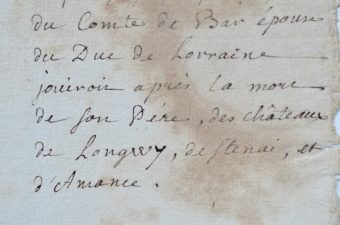 du Comte de Bar épouse
du Duc de Lorraine
jouiroit après la mort
de son Pére, des châteaux
de Longwy, de Stenai, et
d'Amance.